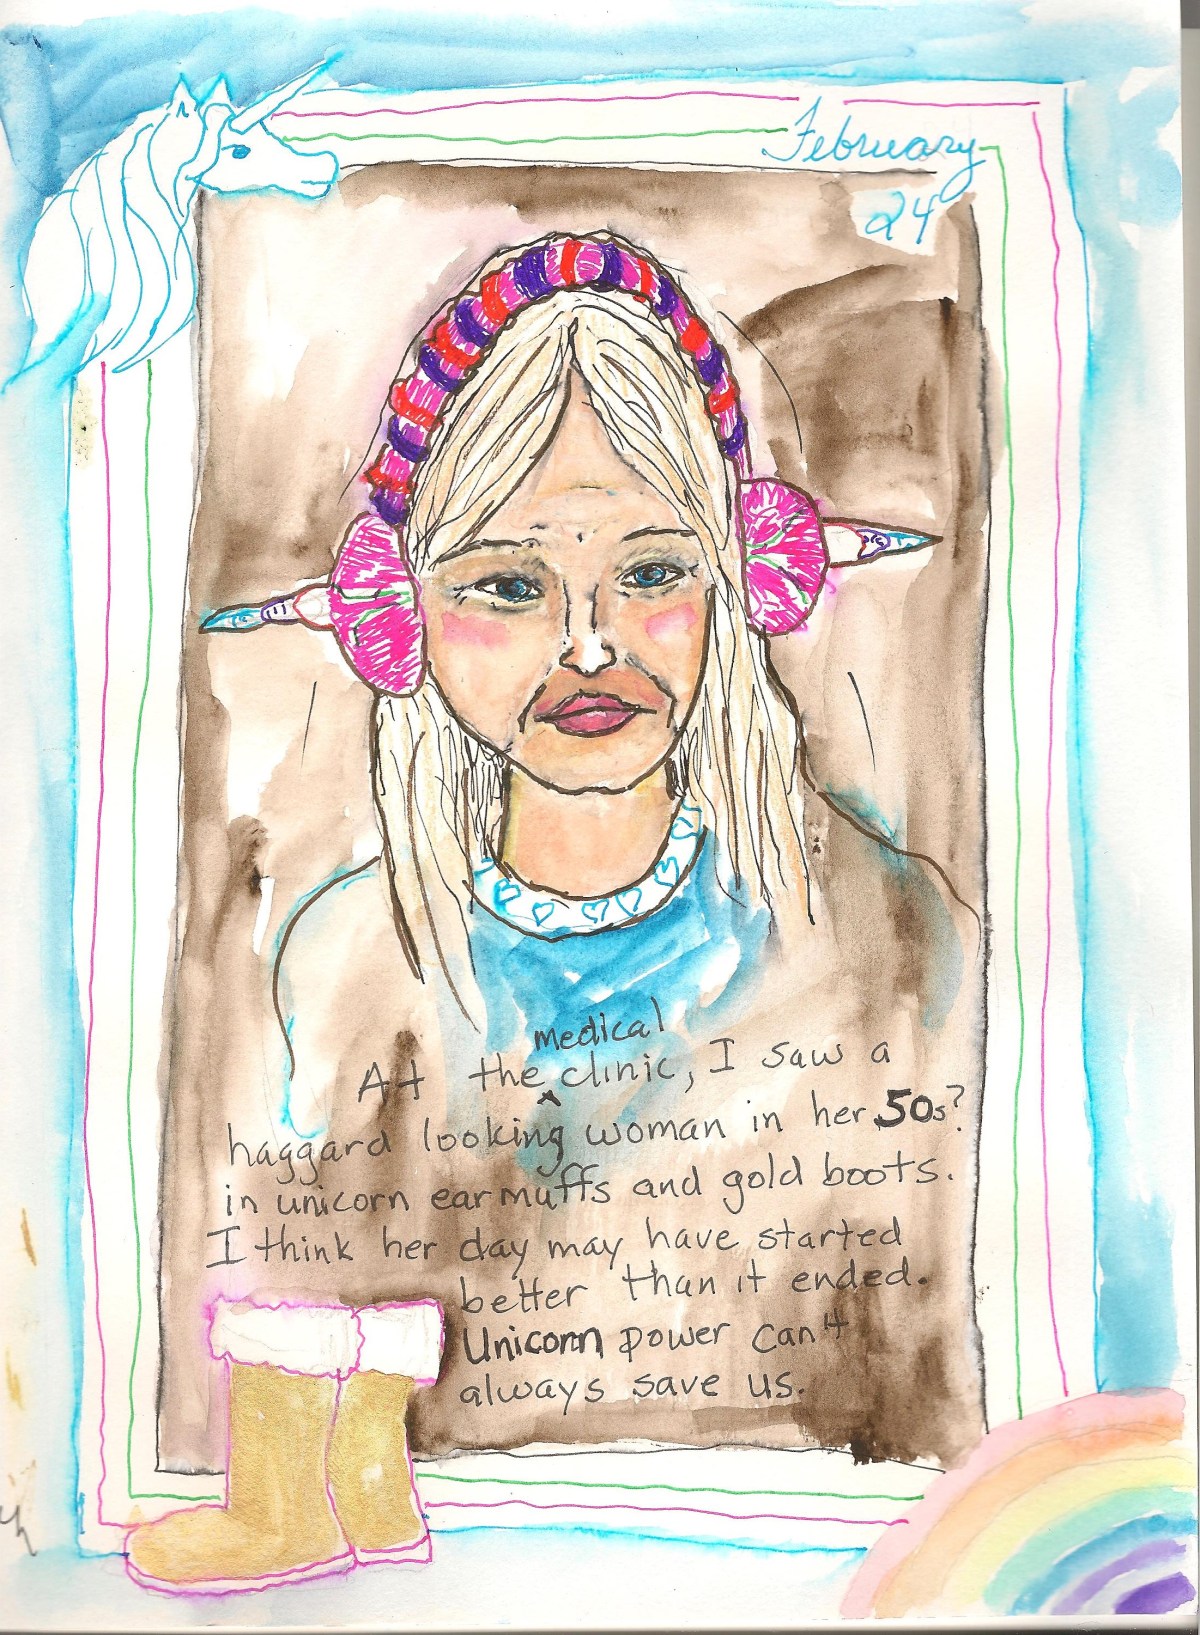 February
24
medical
At the ^ clinic, I saw a
haggard looking woman in her 50s?
in unicorn earmuffs and gold boots.
I think her day may have started
better than it ended.
Unicorn power can't
always save us.